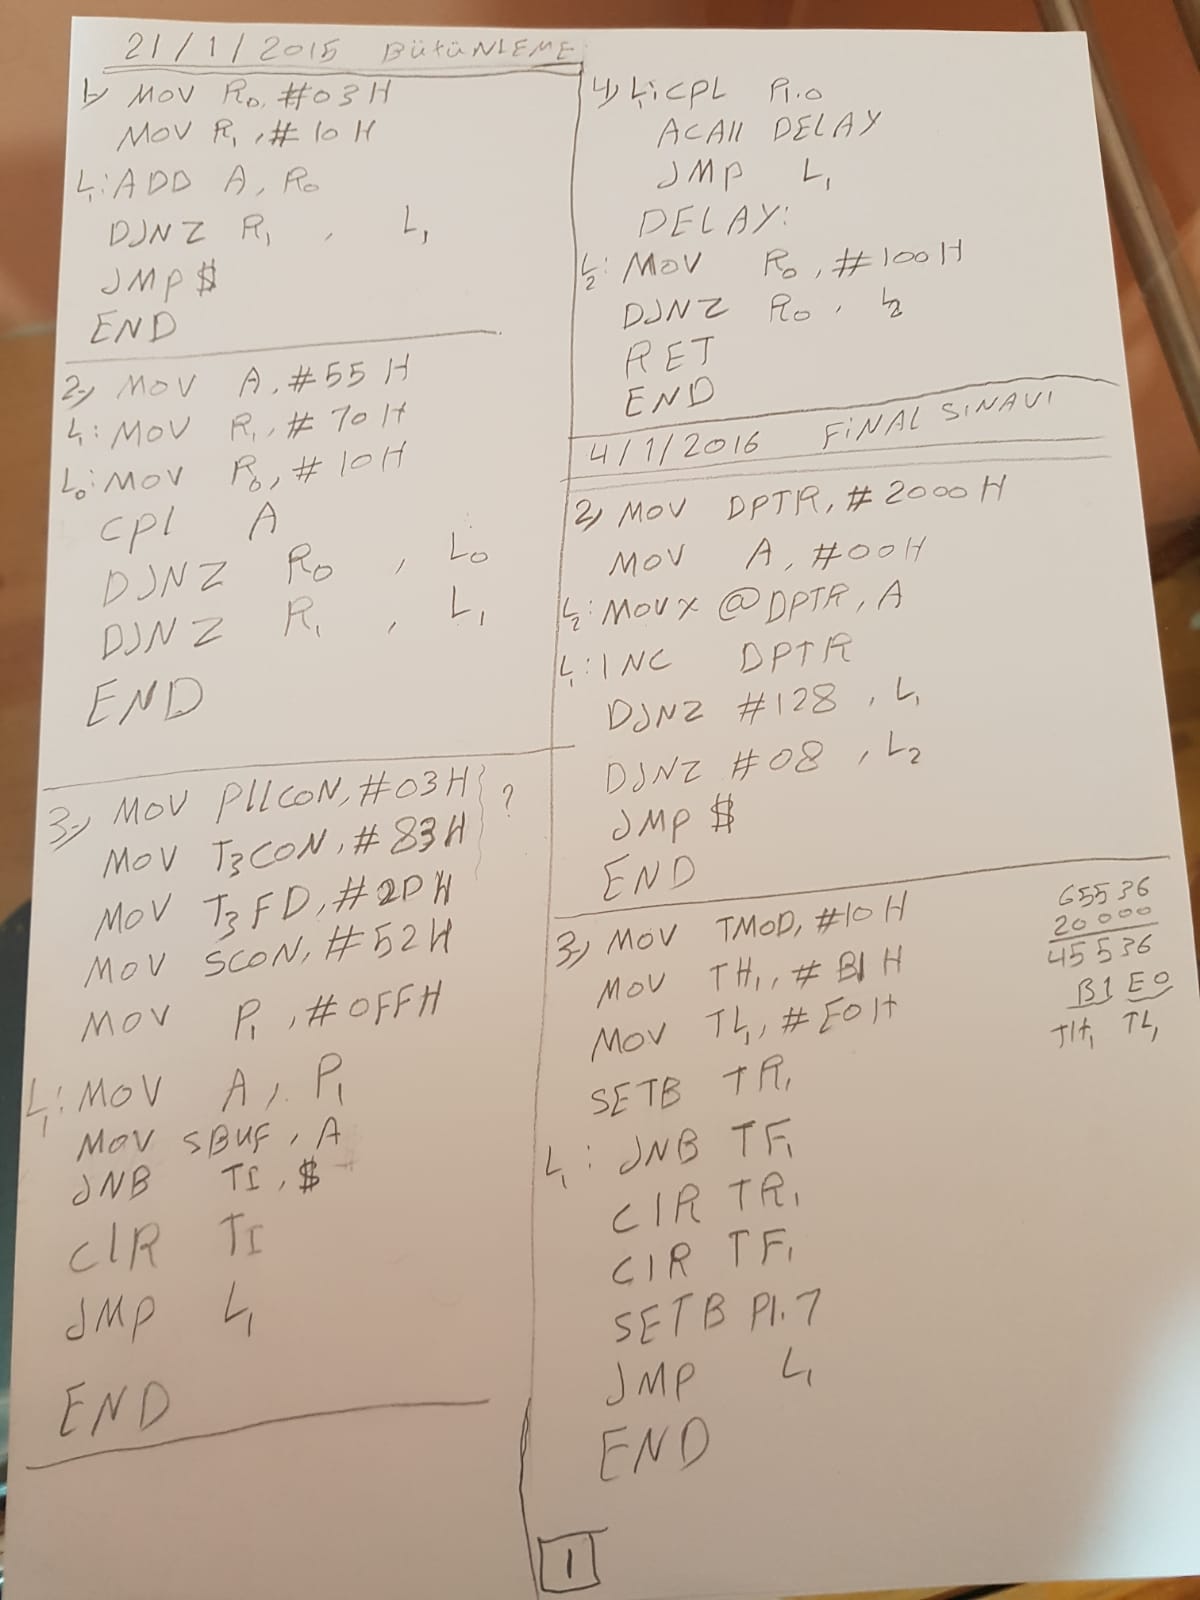 21/1/2015 BÜTÜNLEME
1) MOV R0, #03H
MOV R1, #10H
L1: ADD A, R0
DJNZ R1 , L1
JMP $
END
2-) MOV A, #55H
L1: MOV R1, #70H
L0: MOV R0, #10H
CPl A
DJNZ R0 , L0
DJNZ R1 , L1
END
3-) MOV PllCON, #03H } ?
MOV T3CON, #83H
MOV T3FD, #2DH
MOV SCON, #52H
MOV P1, #0FFH
L1: MOV A, P1
MOV SBUF, A
JNB TI, $
ClR TI
JMP L1
END
4) L1: CPL P1.0
ACAll DELAY
JMP L1
DELAY:
L2: MOV R0, #100H
DJNZ R0, L2
RET
END
4/1/2016 FİNAL SINAVI
2) MOV DPTR, #2000H
MOV A, #00H
L2: MOVX @DPTR, A
L1: INC DPTR
DJNZ #128, L1
DJNZ #08, L2
JMP $
END
3-) MOV TMOD, #10H
MOV TH1, #B1H
MOV TL1, #E0H
SETB TR1
L1: JNB TF1
ClR TR1
ClR TF1
SETB P1.7
JMP L1
END
65536
20000
45536
B1 E0
TH1 TL1
1